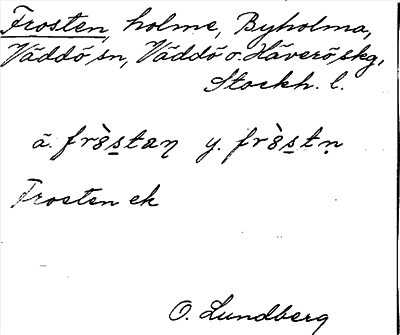 Frosten, holme, Byholma,
Väddö sn, Väddö o. Häverö skg,
Stockh. l.
ä. fròstaη y. fròstn̥
Frosten ek
O. Lundberg